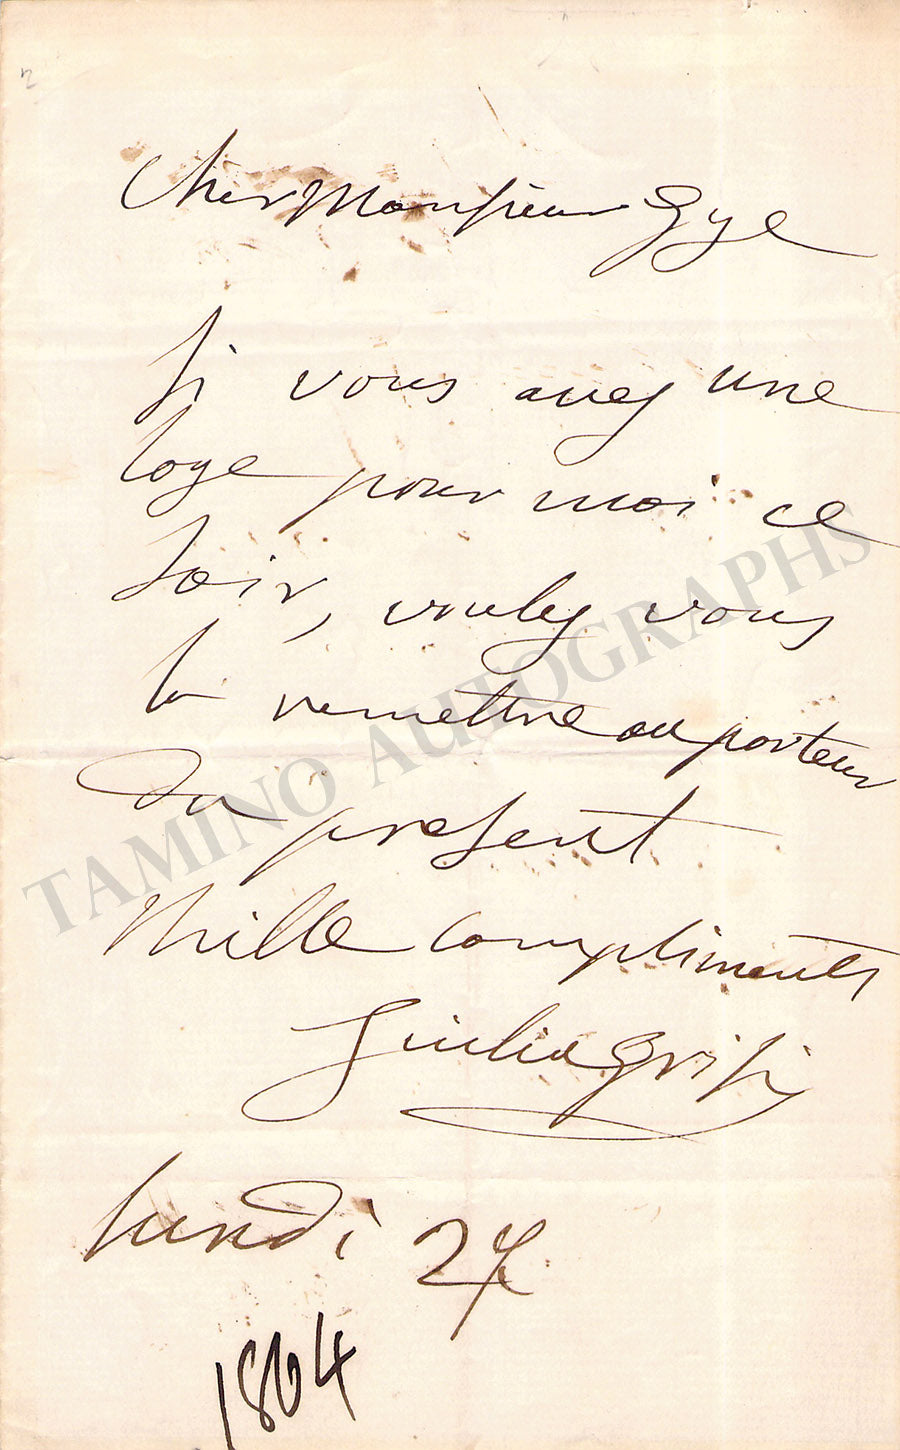 Cher Monsieur Gye
Si vous avez une
loge pour moi ce
soir, voulez vous
la remettre au porteur
du présent
Mille compliments
Giulia Grisi
lundi 27
1864
TAMINO AUTOGRAPHS